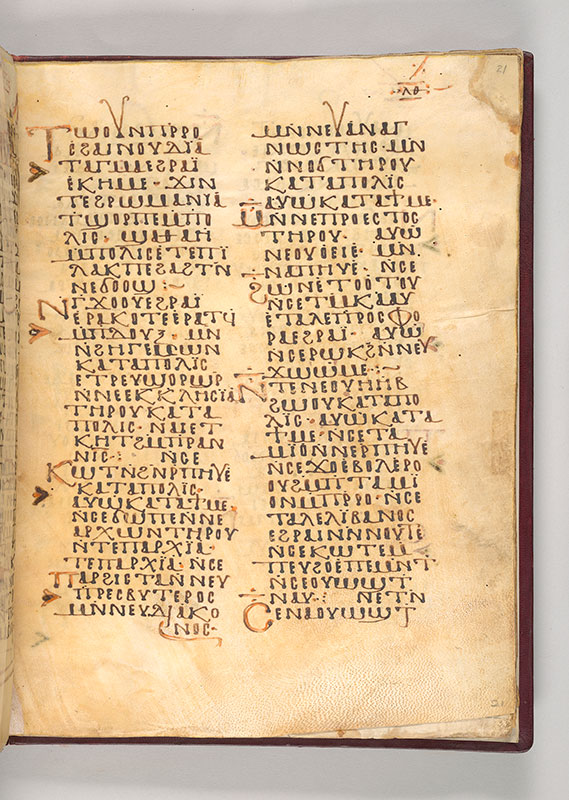 ⲗⲑ
21
ⲧⲱⲟⲩⲛⲡⲣⲣⲟ
ⲉϩⲁⲓⲛⲟⲩⲇⲓⲁ
ⲧⲁⲅⲙⲁⲉϩⲣⲁⲓ̈
ⲉⲕⲏⲙⲉ· ϫⲓⲛ
ⲧⲉϩⲣⲱⲙⲁⲛⲓⲁ
ⲧϣⲟⲣⲡⲉⲙⲡⲟ
ⲗⲓⲥ·
ⲙⲡⲟⲗⲓⲥⲉⲧⲉⲡⲓ̈
ⲗⲁⲕⲡⲉϩⲁϩⲧⲛ̄
ⲛⲉϭⲟⲟϣ:~
ⲛⲅ̄ϫⲟⲟⲩⲉϩⲣⲁⲓ̈
ⲉⲣⲁⲕⲟⲧⲉⲉⲣⲁⲧϥ̄
ⲙⲡⲇⲟⲩⲝ· ⲙⲛ̄
ⲛϩⲏⲅⲉⲙⲱⲛ
ⲕⲁⲧⲁⲡⲟⲗⲓⲥ
ⲉⲧⲣⲉⲩϣⲟⲣϣⲣ̄
ⲛ̄ⲛⲉⲕⲕⲗⲏⲥⲓⲁ
ⲧⲏⲣⲟⲩⲕⲁⲧⲁ
ⲡⲟⲗⲓⲥ· ⲛⲁⲓⲉⲧ
ⲕⲏⲧϩⲙⲡⲣⲁⲛ
ⲛⲓⲥ:~ ⲛ̄ⲥⲉ
ⲕⲱⲧⲛ̄ϩⲛ̄ⲣⲡⲏⲩⲉ
ⲕⲁⲧⲁⲡⲟⲗⲓⲥ·
ⲁⲩⲱⲕⲁⲧⲁϯⲙⲉ
ⲛ̄ⲥⲉϭⲱⲡⲉⲛ̄ⲛⲉ
ⲁⲣⲭⲱⲛⲧⲏⲣⲟⲩ
ⲛ̄ⲧⲉⲡⲁⲣⲭⲓⲁ·
ⲧⲉⲡⲁⲣⲭⲓⲁ· ⲛ̄ⲥⲉ
ⲡⲁⲣϩⲓⲥⲧⲁⲛ̄ⲛⲉⲩ
ⲡⲣⲉⲥⲃⲩⲧⲉⲣⲟⲥ
ⲙⲛ̄ⲛⲉⲩⲇⲓⲁⲕⲟ
ⲛⲟⲥ·
ⲙⲛ̄ⲛⲉⲩⲁⲛⲁⲅ
ⲛⲱⲥⲧⲏⲥ· ⲙⲛ̄
ⲛ̄ⲛⲟϭⲧⲏⲣⲟⲩ
ⲕⲁⲧⲁⲡⲟⲗⲓⲥ
ⲁⲩⲱⲕⲁⲧⲁϯⲙⲉ·
ⲙⲛ̄ⲛⲉⲡⲣⲟⲉⲥⲧⲟⲥ
ⲧⲏⲣⲟⲩ· ⲁⲩⲱ
ⲛⲉⲟⲩⲟⲉⲓⲉ· ⲙⲛ̄
ⲛⲁⲡⲏⲩⲉ· ⲛ̄ⲥⲉ
ϩⲱⲛⲉⲧⲟⲟⲧⲟⲩ
ⲛ̄ⲥⲉⲧⲙ̄ⲕⲁⲁⲩ
ⲉⲧⲁⲗⲉⲡⲣⲟⲥⲫⲟ
ⲣⲁⲉϩⲣⲁⲓ̈· ⲁⲩⲱ
ⲛ̄ⲥⲉⲣⲱⲕϩ̄ⲛ̄ⲛⲉⲩ
ϫⲱⲱⲙⲉ:~
ⲛ̄ⲧⲉⲛⲉⲟⲩⲏⲏⲃ
ϩⲱⲟⲩⲕⲁⲧⲁⲡⲟ
ⲗⲓⲥ· ⲁⲩⲱⲕⲁⲧⲁ
ϯⲙⲉ· ⲛ̄ⲥⲉⲧⲁ
ⲙⲓⲟⲛ̄ⲛⲉⲣⲡⲏⲩⲉ
ⲛ̄ⲥⲉϫⲟⲉⲃⲟⲗⲉⲣⲟ
ⲟⲩϩⲙ̄ⲡⲧⲁⲙⲓ
ⲟⲛⲙ̄ⲡⲣⲣⲟ· ⲛ̄ⲥⲉ
ⲧⲁⲗⲉⲗⲓⲃⲁⲛⲟⲥ
ⲉϩⲣⲁⲓⲛ̄ⲛ̄ⲛⲟⲩⲧⲉ
ⲛ̄ⲥⲉⲕⲱⲧⲉⲙ̄
ⲡⲉⲩϭⲟⲉⲡⲉⲙⲛ̄ⲧ
ⲛ̄ⲥⲉⲟⲩⲱϣⲧ
ⲛⲁⲩ:~ ⲡⲉⲧⲛ̄
ⲥⲉⲛⲁⲟⲩⲱϣⲧ